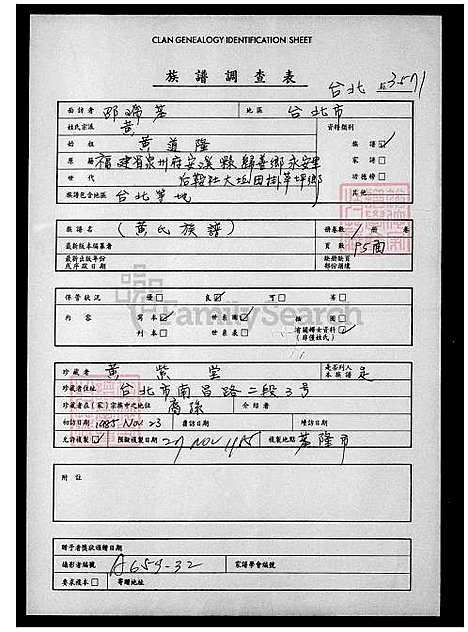 CLAN GENEALOGY IDENTIFICATION SHEET
族譜調查表
台北 3571
面訪者 地區 台北市
姓氏宗派 黃 資料類別
始祖 黃道隆 族譜☑
原籍 福建省泉州府安溪縣歸善鄉永安里 家譜□
世代 治鞍社大坵田掛草坪鄉 功德榜□
族譜包含地區 台北等地 其他
族譜名 (黃氏族譜) 冊卷數 1 冊 卷
最新版本編纂者 頁數 95面
最新出版年份或序跋日期
保管狀況 優□ 良☑ 可□ 劣□
內容 寫本☑ 世系圖☑ 插圖□
刊本□ 世系表□ 有關婦女資料☑
(非僅姓氏)
FamilySearch
珍藏者 黃紫堂 是否列入本族譜 是
珍藏者住址 台北市南昌路二段3號
珍藏者在(家)宗族中之地位 裔孫 介紹者
初訪日期 1985 Nov 23 覆訪日期 續訪日期
允許複製☑ 預擬複製日期 27 NOV 1985 複製地點 基隆市
附註
贈予者獎狀頒贈日期
攝影者編號 A659-32 家譜學會編號
要求複本□ 寄贈地址